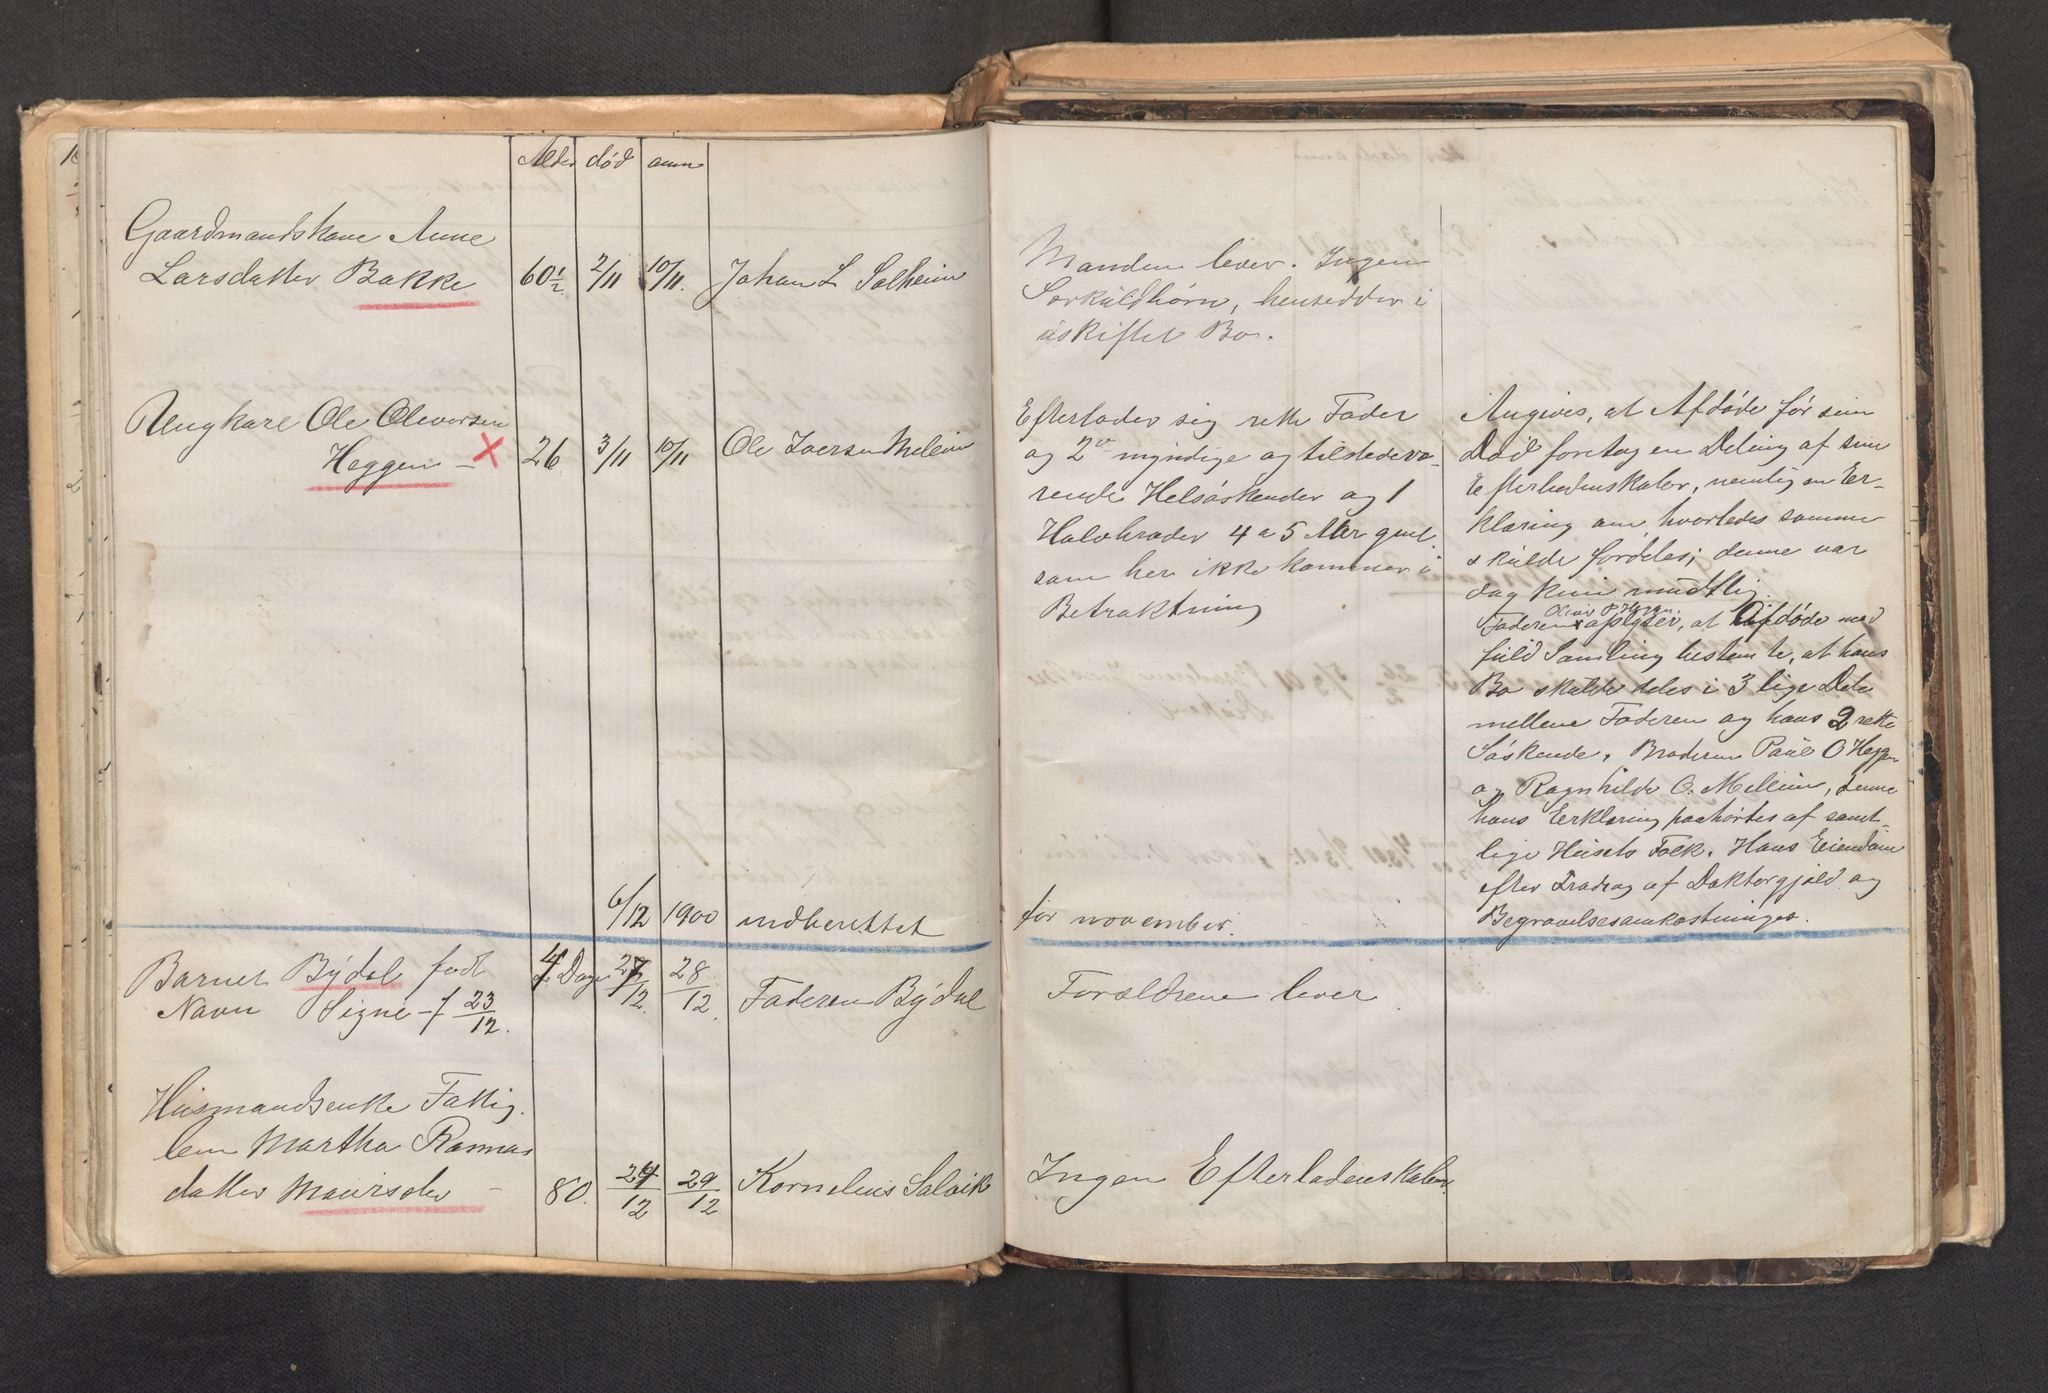 Alder død anm
Gaardmandskone Anne
Larsdatter Bakke 60½ 2/11 10/11. Johan L Solheim
Ungkarl Ole Oleversen
Heggen – 26 3/11 10/11 Ole Iversen Melleim
6/12 1900 indberettet
Barnet Bÿdal født 4 Dage 27/12. 28/12. Faderen Bÿdal
Navn Signe – f 23/12.
Husmandsenke Fattig-
lem Martha Rasmus
datter Maurset – 80. 24/12 29/12 Kornelius Solvik
Manden lever. Ingen
Særkuldbørn, hensidder i
uskiftet Bo.
Efterlader sig rette Fader
og 2 myndige og tilstedevæ-
rende Helsøskender og 1
Halvbroder 4 a 5 Aar gml.
som her ikke kommer i
Betraktning
for november.
Forældrene lever
Ingen Efterladenskaber.
Angives, at Afdøde før sin
Død foretog en Deling af sine
Efterladenskaber, nemlig en Er-
klæring om hvorledes samme
skulde fordeles; denne var
dog kun mundtlig.
Faderen opgiver, at Afdøde med
fuld Samling bestemte, at hans
Bo skulde deles i 3 lige Dele
mellem Faderen og hans 2 rette
Søskende. Broderen Paul O Heggen
og Ragnhilde O. Melleim, denne
hans Erklæring paahørtes af samt-
lige Husets Folk. Hans Eiendom
efter Fradrag af Doktorgjæld og
Begravelsesomkostninger.